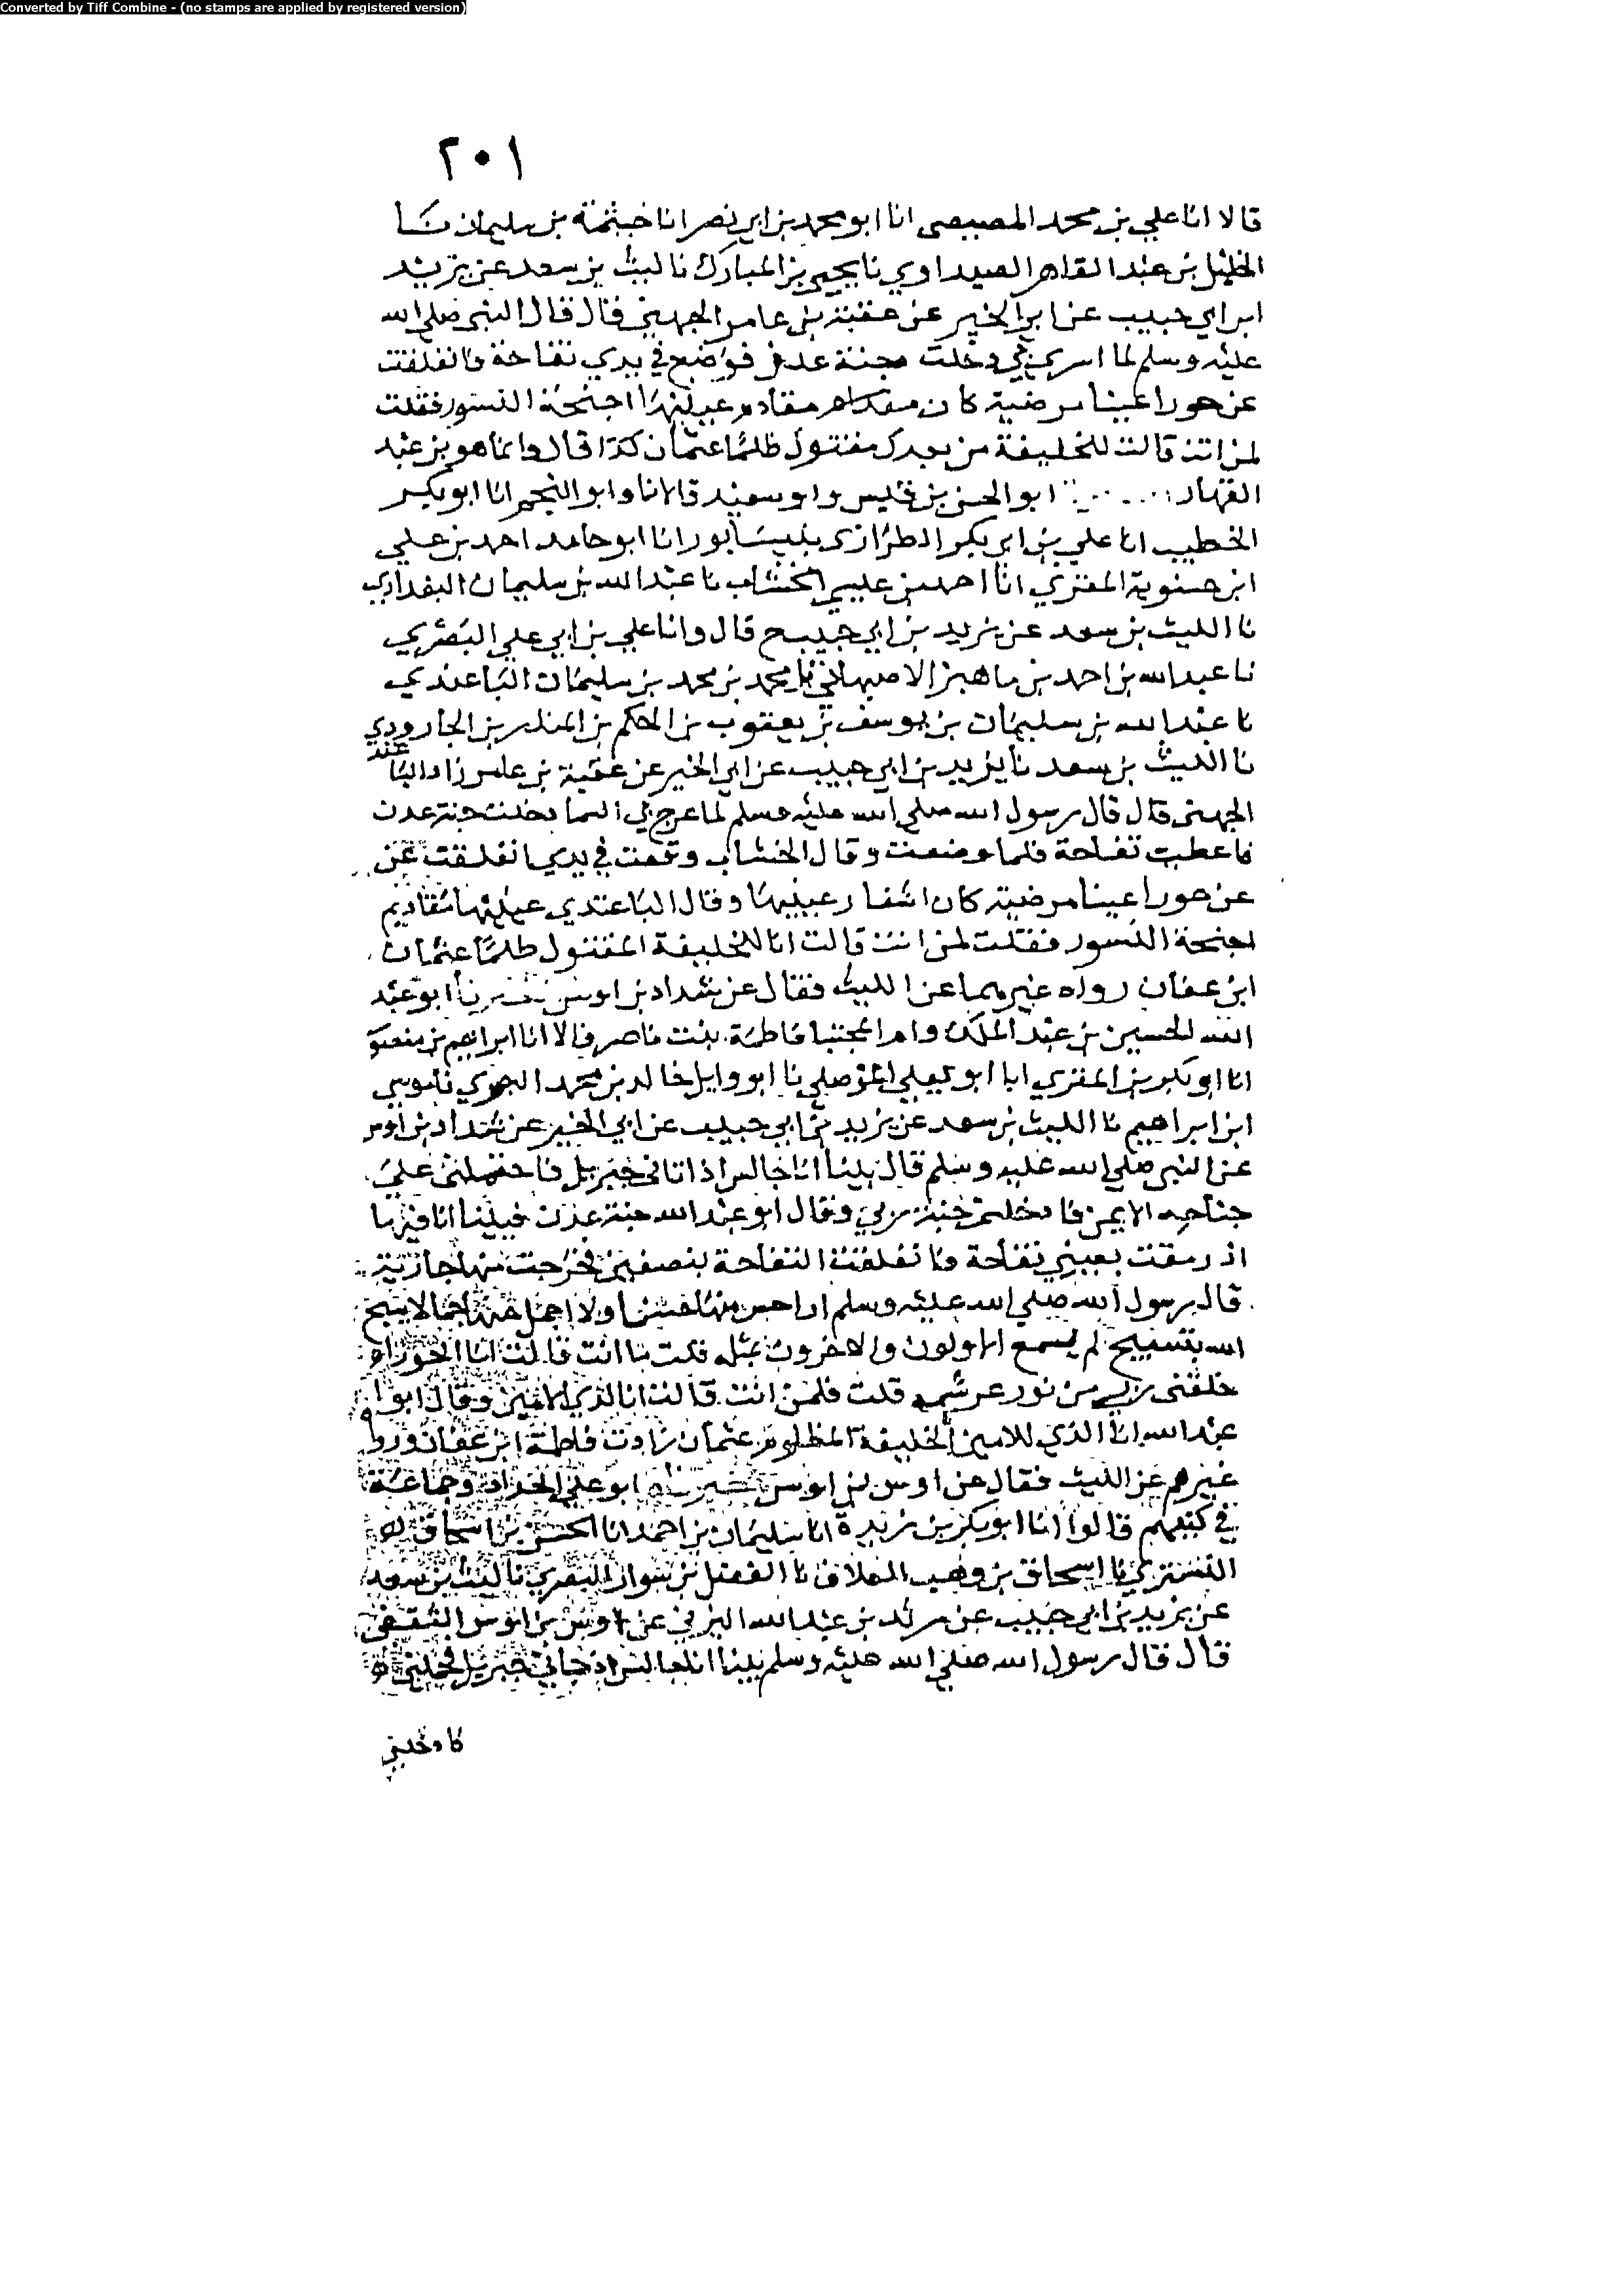 Converted by Tiff Combine - (no stamps are applied by registered version)
٢٠١
قالا انا علي بن محمد المصيصى انا ابو محمد بن ابي نصر انا خيثمة بن سليمان نا
الخليل بن عبد القاهر الصيداوي نا يحيى بن المبارك نا ليث بن سعد عن يزيد
ابن ابي حبيب عن ابي الخير عن عقبة بن عامر الجهني قال قال النبي صلى الله
عليه وسلم لما اسري بي دخلت جنة عدن فوضع في يدي تفاحة فانفلقت
عن حورا عينا مرضية كان مقادم عينيها اجنحة النسور فقلت
لمن انت قالت للخليفة من بعدك مقتول ظلما عثمان كذا قال وانما هو بن عبد
القهار ابو الحسن بن قبيس وابو سعيد قالا نا وابو النجم انا ابو بكر
الخطيب انا علي بن ابي بكر الطرازى بنيسابور انا ابو حامد احمد بن علي
ابن حسنوية المقري انا احمد بن عيسى الخشاب نا عبد الله بن سليمان البغدادي
نا الليث بن سعد عن يزيد بن ابي حبيب ح قال وانا علي بن ابي علي البصري
نا عبد الله بن احمد بن ماهبز الاصبهاني نا محمد بن محمد بن سليمان الباغندي
نا عبد الله بن سليمان بن يوسف بن يعقوب بن الحكم بن المنذر بن الجارودي
نا الليث بن سعد نا يزيد بن ابي حبيب عن ابي الخير عن عقبة بن عامر زاد الباغندي
الجهني قال قال رسول الله صلى الله عليه وسلم لما عرج بي الى السما دخلت جنة عدن
فاعطيت تفاحة فلما وضعت وقال الخشاب وقعت في يدي انفلقت عن
عن حورا عينا مرضية كان اشفار عينيها وقال الباغندي عينيها مقاديم
اجنحة النسور فقلت لمن انت قالت انا للخليفة المقتول ظلما عثمان
ابن عفان رواه غيرهما عن الليث فقال عن شداد بن اوس ابو عبد
الله الحسين بن عبد الملك وام المجتبا فاطمة بنت ناصر قالا انا ابراهيم بن منصور
انا ابو بكر بن المقري انا ابو يعلي الموصلي نا ابو وايل خالد بن محمد البصري نا موسى
ابن ابراهيم نا الليث بن سعد عن يزيد بن ابي حبيب عن ابي الخير عن شداد بن اوس
عن النبي صلى الله عليه وسلم قال بينا انا جالس اذ اتاني جبريل فاحتملني على
جناحه الايمن فادخلني جنة ربي وقال ابو عبد الله جنة عدن فبينا انا فيها
اذ رمقت بعيني تفاحة فانفلقت التفاحة بنصفين فخرجت منها جارية
قال رسول الله صلى الله عليه وسلم لم ار احسن منها حسنا ولا اجمل منها جمالا تسبح
الله بتسبيح لم يسمع الاولون والاخرون بمثله قلت ما انت قالت انا الحوراء
خلقني ربي من نور عرشه قلت فلمن انت قالت انا لذي الامين وقال ابو
عبد الله انا الذي للامين الخليفة المظلوم عثمان زادت فاطمة ابن عفان ورواه
غيرهم عن الليث فقال عن اوس بن اوس ابو علي الحداد وجماعة
في كتبهم قالوا انا ابو بكر بن ريذة انا سليمان بن احمد انا الحسين بن اسحاق
التستري نا اسحاق بن وهب العلاف نا الفضل بن سوار البصري نا ليث بن سعد
عن يزيد بن ابي حبيب عن مرثد بن عبد الله اليزني عن اوس بن اوس الثقفي
قال قال رسول الله صلى الله عليه وسلم بينا انا جالس اذ جاني جبريل فحملني
فادخلني